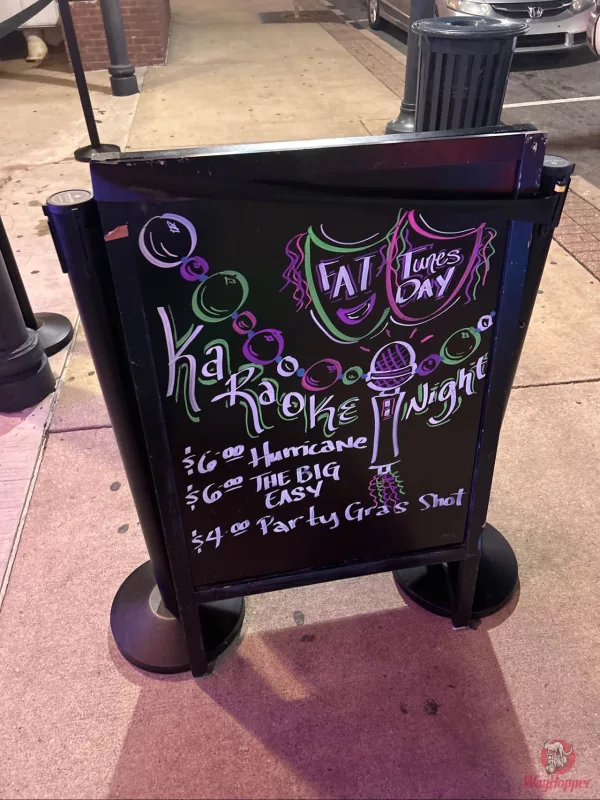 FAT Tunes
DAY
Karaoke Night
$6.00 Hurricane
$6.00 THE BIG
EASY
$4.00 Party Gras Shot
WayHopper